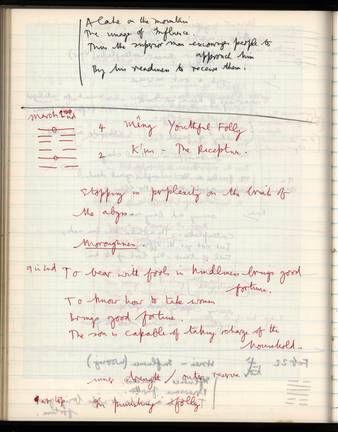 A lake on the mountain
The image of Influence
Thus the superior man encourages people to
approach him
By his readiness to receive them.
March 2nd
4 Mêng Youthful Folly
2 K'un - The Receptive.
Stopping in perplexity on the brink of
the abyss
thoroughness
9 in 2nd To bear with fools in kindliness brings good
fortune.
To know how to take women
Brings good fortune.
The son is capable of taking charge of the
household.
inner strength / outer reserve
9 at top In punishing folly